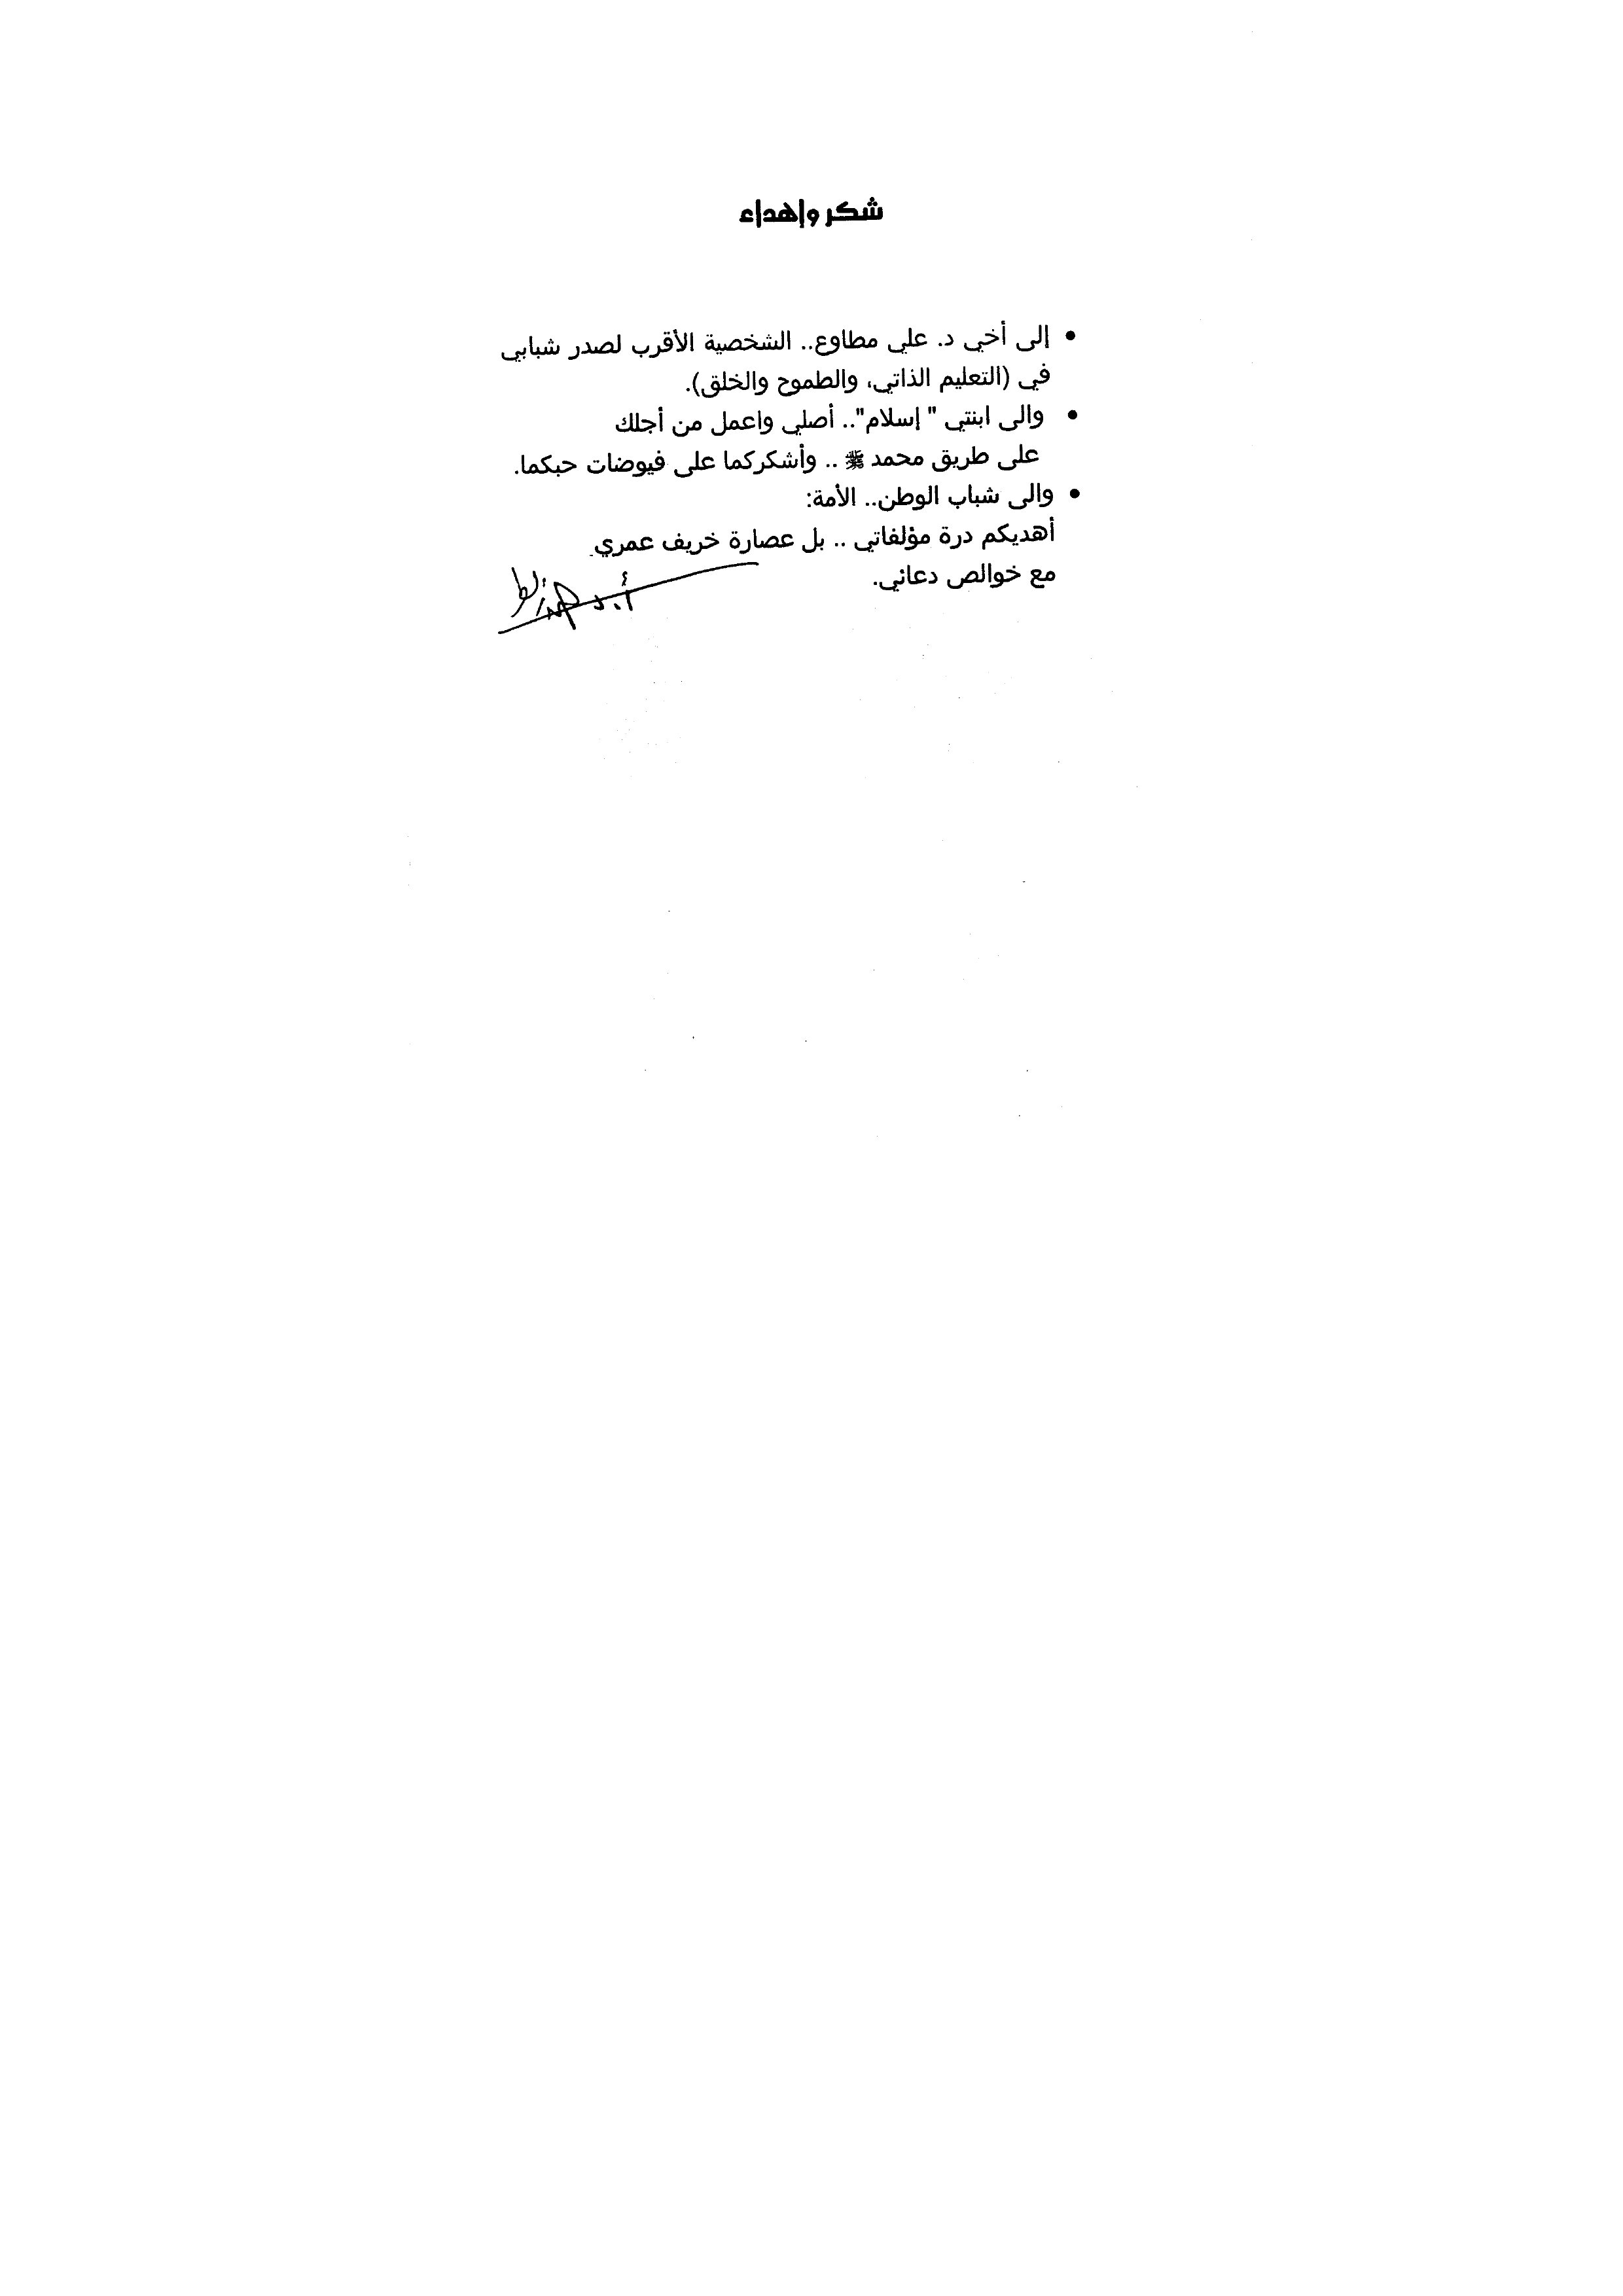 شكر وإهداء
• إلى أخي د. علي مطاوع.. الشخصية الأقرب لصدر شبابي
في (التعليم الذاتي، والطموح والخلق).
• والى ابنتي " إسلام".. أصلي واعمل من أجلك
على طريق محمد ﷺ .. وأشكركما على فيوضات حبكما.
• والى شباب الوطن.. الأمة:
أهديكم درة مؤلفاتي .. بل عصارة خريف عمري
مع خوالص دعائي.
أ.د